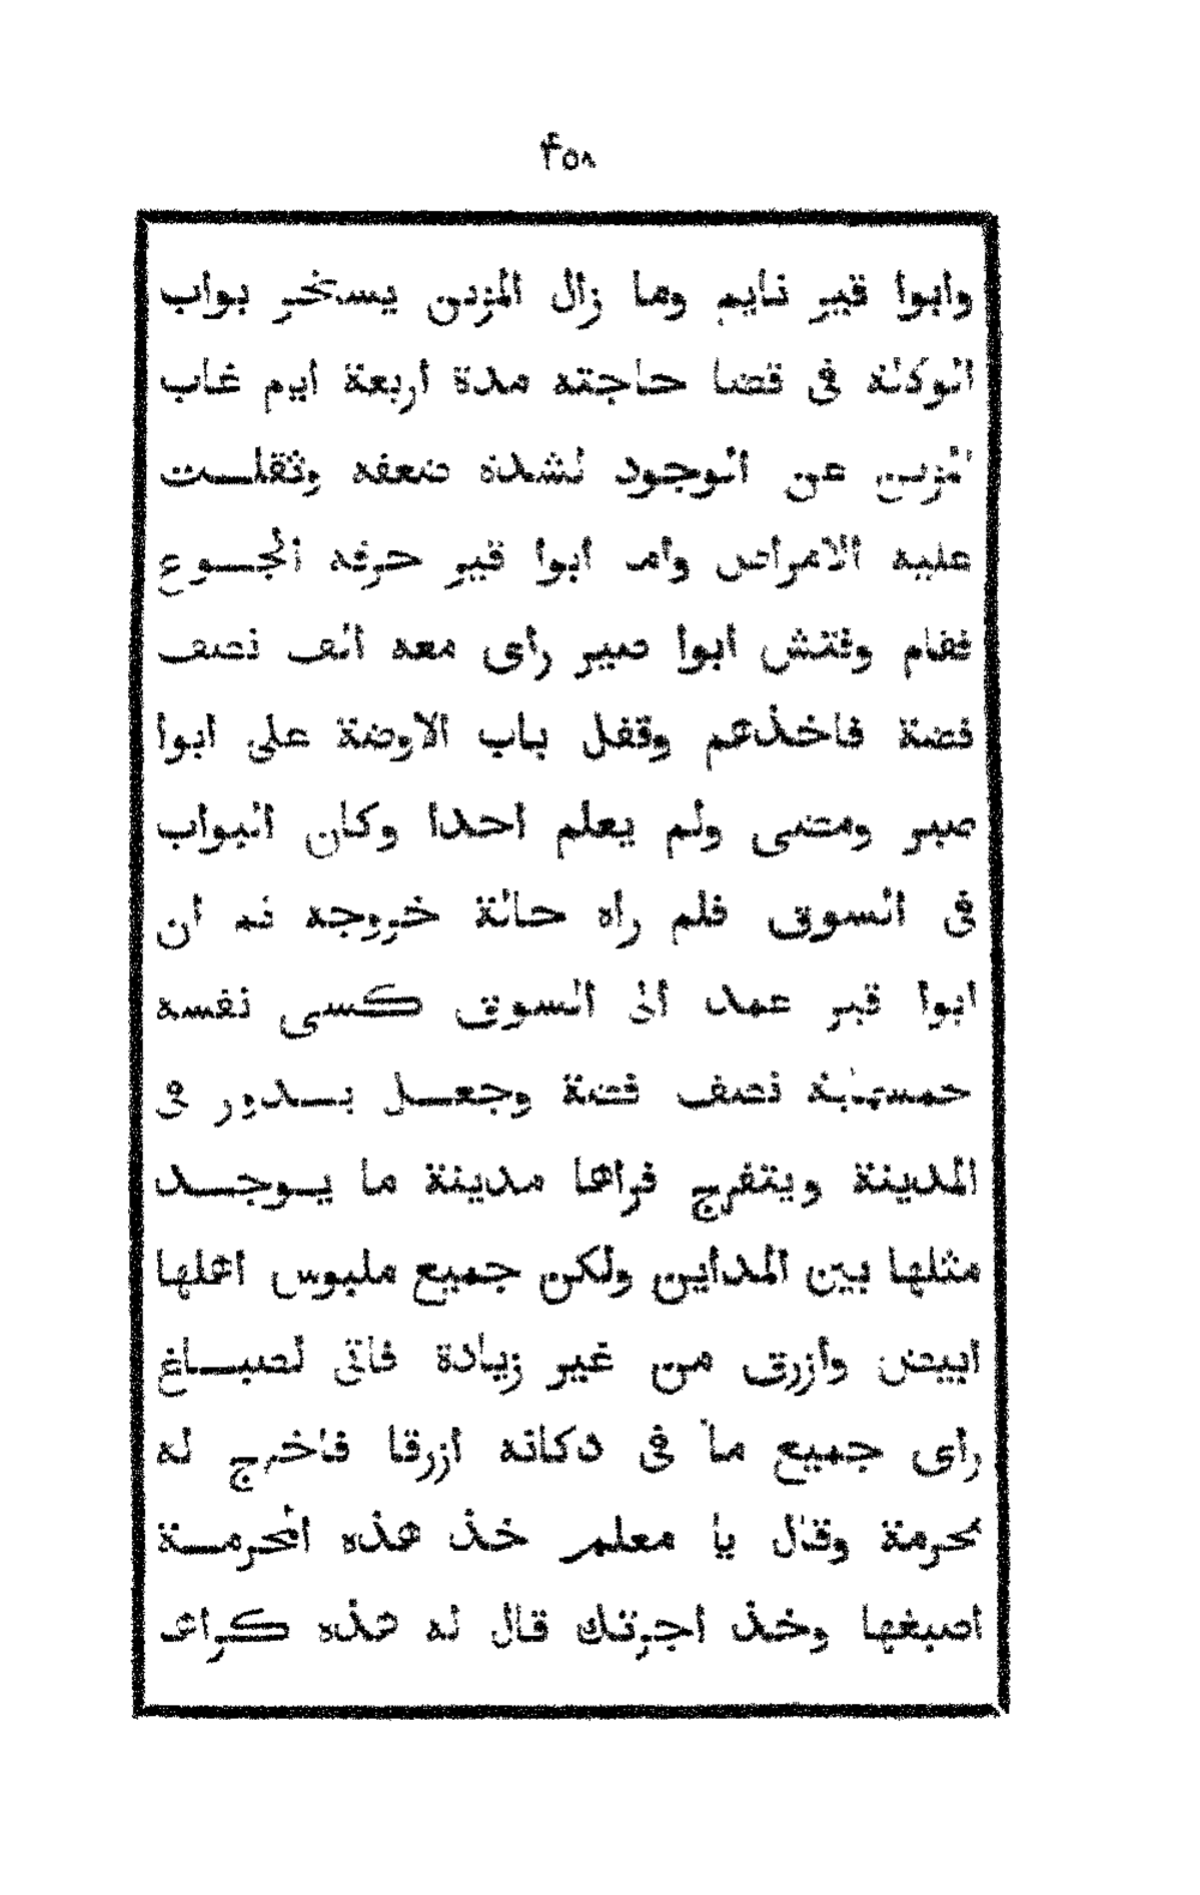 ٤٥٨
وابوا قير نايم وما زال المزين يستخر بواب
الوكالة فى قضا حاجته مدة اربعة ايم غاب
المزين عن الوجود لشدة ضعفه وثقلت
عليه الامراض وام ابوا قير حرقه الجوع
فقام وفتش ابوا صير راى معه الف نصف
فضة فاخذهم وقفل باب الاوضة على ابوا
صير ومضى ولم يعلم احدا وكان البواب
فى السوق فلم راه حالة خروجه ثم ان
ابوا قير عمد الى السوق كسى نفسه
خمسماية نصف فضة وجعل يدور فى
المدينة ويتفرج فراها مدينة ما يوجد
مثلها بين المداين ولكن جميع ملبوس اهلها
ابيض وازرق من غير زيادة فاتى لصباغ
راى جميع ما فى دكانه ازرقا فاخرج له
محرمة وقال يا معلم خذ هذه المحرمة
اصبغها وخذ اجرتك قال له هذه كراها